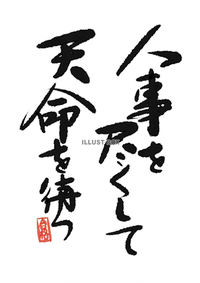 人事を
尽くして
天命を待つ